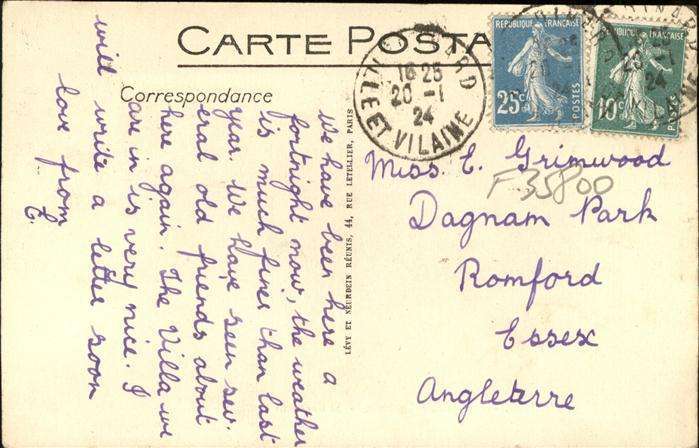 CARTE POSTA
Correspondance
We have been here a
fortnight now, the weather
is much finer than last
year. We have seen sev-
eral old friends about
here again. The Villa we
are in is very nice. I
will write a letter soon
love from
E.
LÉVY ET NEURDEIN RÉUNIS, 44, RUE LETELLIER, PARIS
16 25
20 -1
24
ILLE ET VILAINE
REPUBLIQUE FRANÇAISE
25c
POSTES
REPUBLIQUE FRANÇAISE
10c
POSTES
25
24
Miss E. Grimwood
F35800
Dagnam Park
Romford
Essex
Angleterre